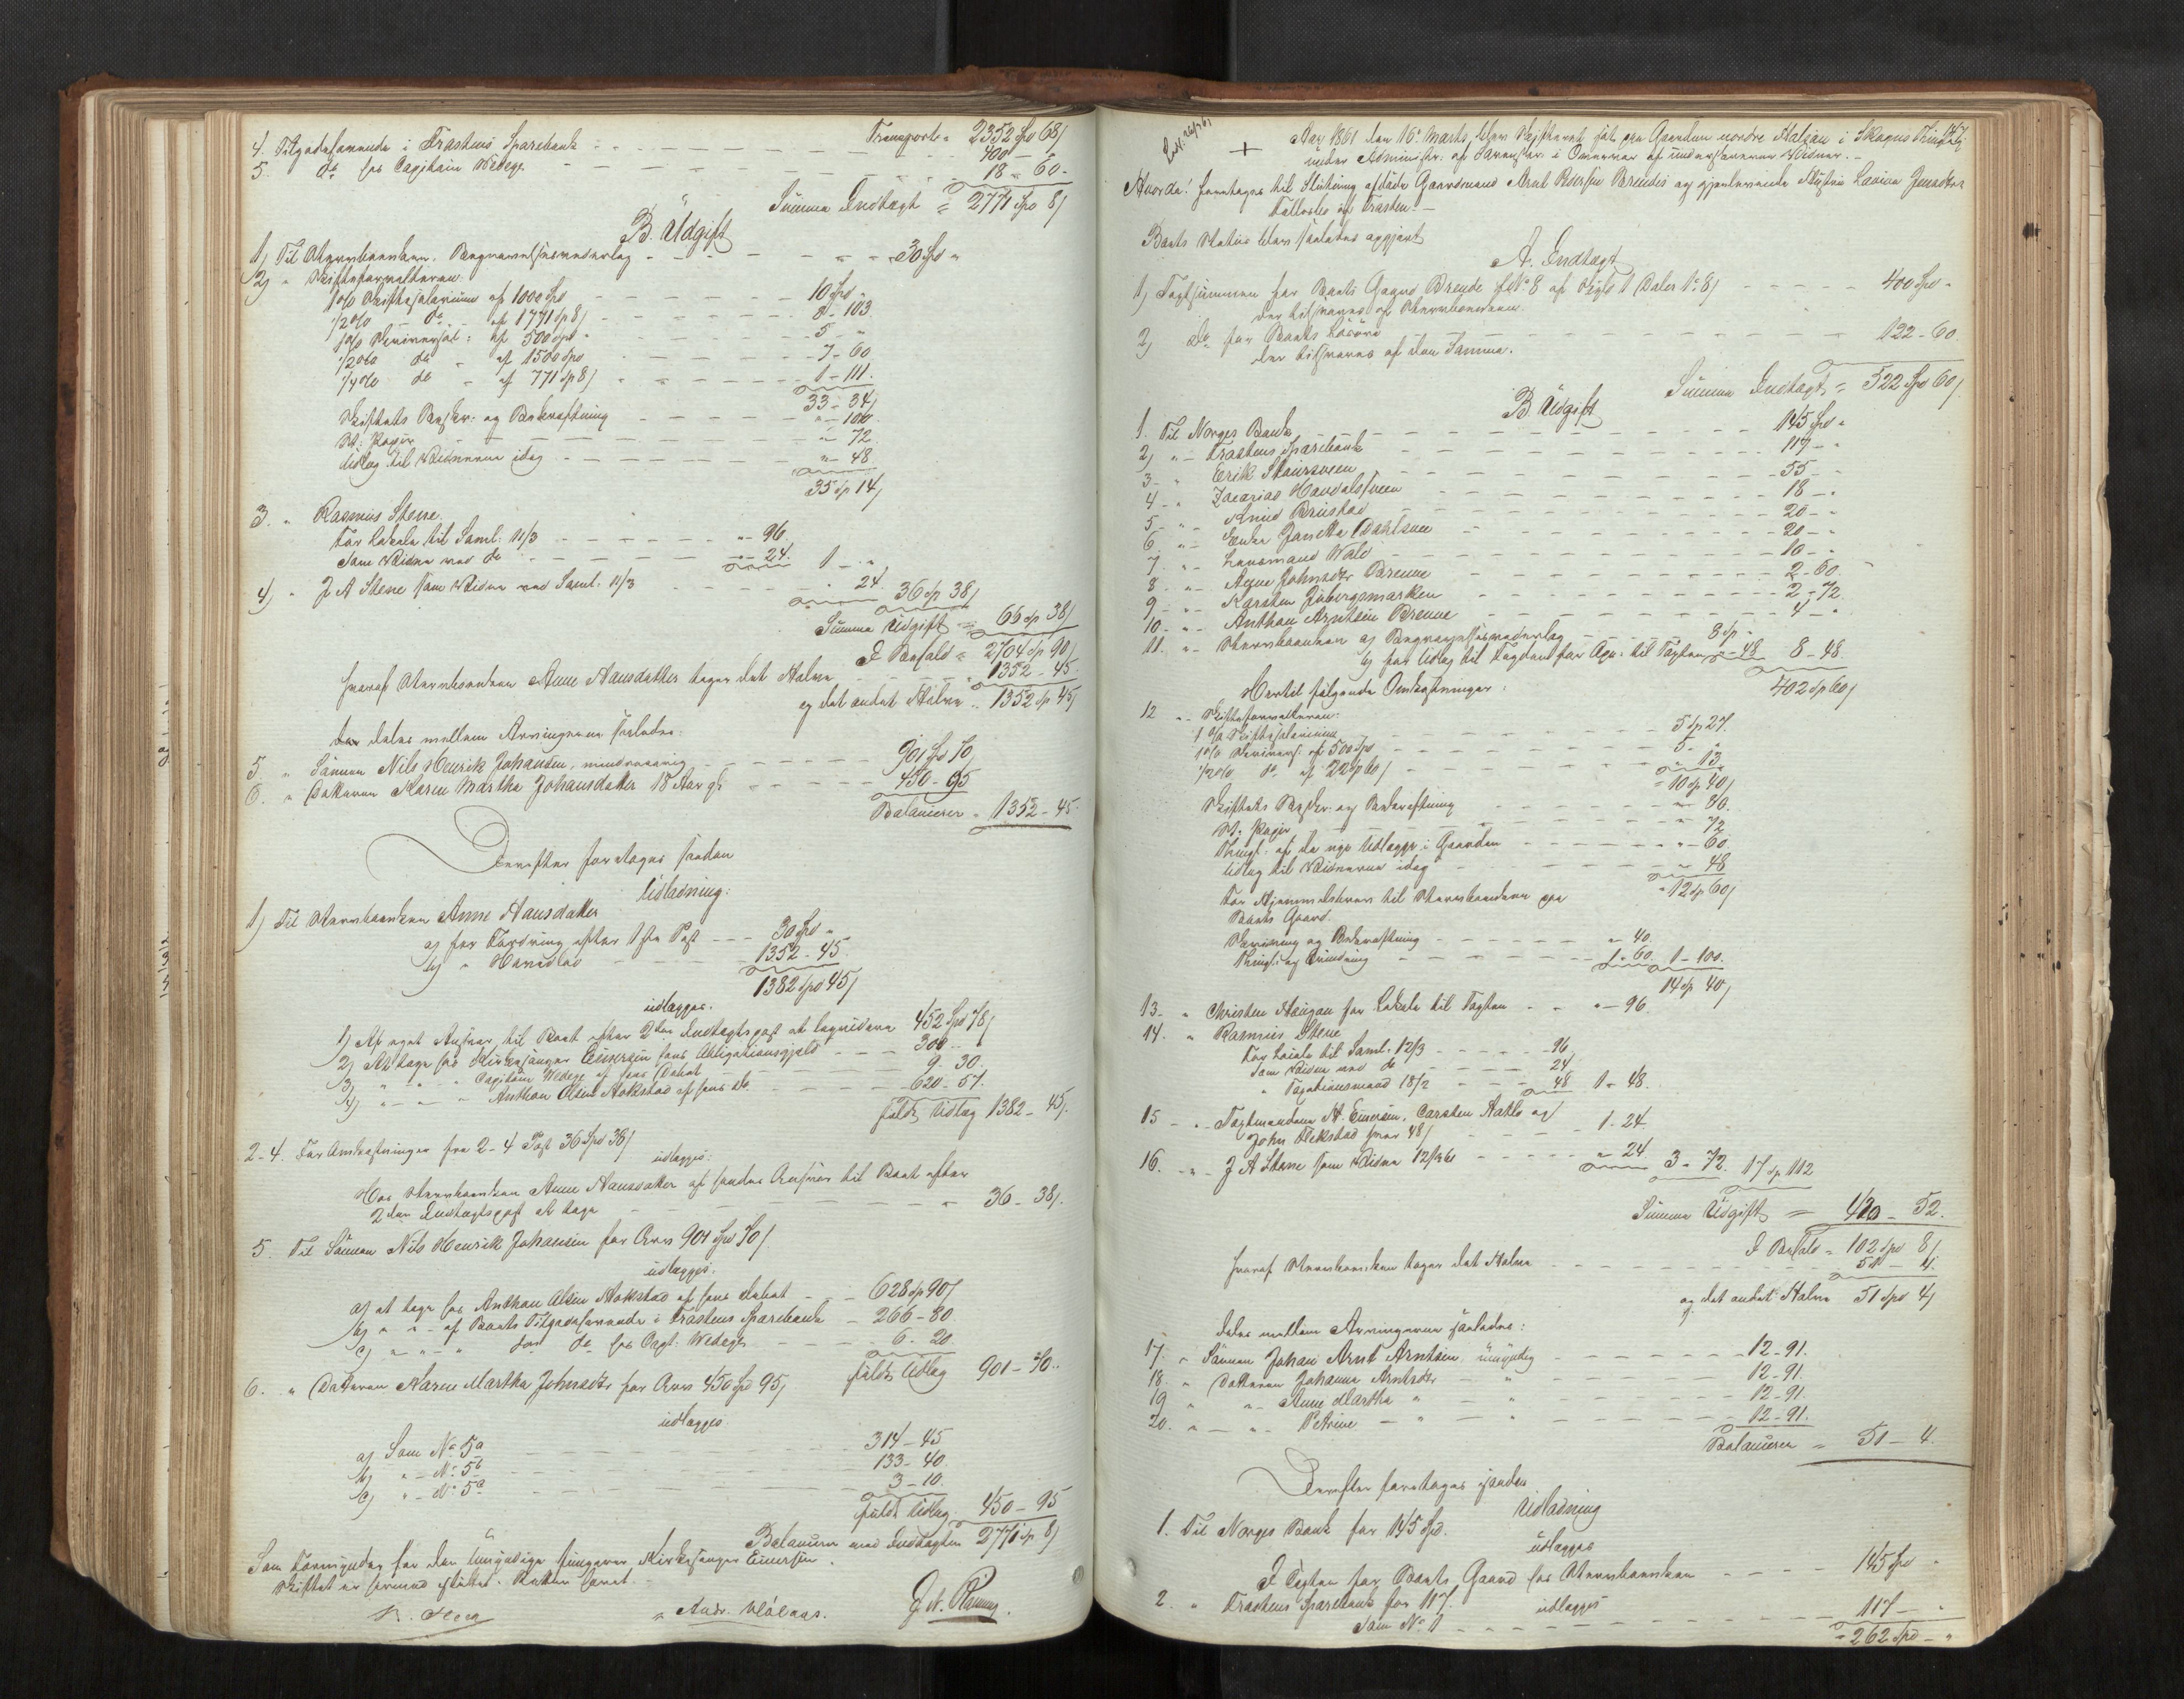 Transport = 2352 Spd 68/
4. Tilgodehavende i Frostens Sparebank - - - 400 -
5. do hos Capitain Wedege - - - 18 - 60.
Summa Indtægt = 2771 Spd 8/
B. Udgift
1) Til Stervboenken, Begravelsesvederlag - - - 30 Spd "
2) " Skifteforvalteren
1% Skiftesalarium af 1000 Spd - - - 10 Spd "
1/2% - do - af 1771 sp 8/ - - - 8 - 103
1% Reviversal: af 500 spd - - - 5 - "
1/2% do - af 1500 spd - - - 7 - 60
1/4% do - af 771 sp 8/ - - - 1 - 111.
33 - 34/
Skiftets Beskr: og Bekræftning - - - " 100
St: Papir - - - " 72
Udlæg til Vidnerne idag - - - " 48
35 sp 14/
3. " Rasmus Stene
For Lokale til Saml: 11/3 - - - " 96.
Som Vidne ved do - - - " 24. 1 - "
4) " J A Stene som Vidne ved Saml: 11/3 - - - " 24 36 sp 38/
Summa Udgift = 66 sp 38/
I Behold = 2704 sp 90/
hvoraf Stervboenken Anne Hansdatter tager det Halve - - - 1352 - 45
og det andet Halve " 1352 sp 45/
deles mellem Arvingerne saaledes:
5. " Sønnen Nils Henrik Johansen, mindreaarig - - - 901 Spd 70/
6. " Datteren Karen Martha Johansdatter 18 Aar gl - - - 450 - 95
Balancerer = 1352 - 45
Derefter foretoges saadan
Udlodning:
1) Til Stervboenken Anne Hansdatter
a) for Fordring efter 1ste Post - - - 30 Spd "
b) " Hovedlod - - - 1352 - 45
1382 spd 45/
udlægges.
1) Af eget Ansvar til Boet efter 2den Indtægtspost at liquidere 452 Spd 78/
2) At tage hos Kirkesanger Einersen hans Obligationsgjeld - - - 300 - "
3) " - " - " Capitain Wedege af hans Debet - - - 9 - 30.
4) " - " - " Anthon Olsen Hokstad af hans do - - - 620 - 57.
fuldt Udlæg 1382 - 45/
2-4. For Omkostninger fra 2-4 Post 36 Spd 38/
udlægges:
Hos Stervboenken Anne Hansdatter af hendes Ansvar til Boet efter
2den Indtægtspost at tage - - - " 36 - 38/.
5. Til Sønnen Nils Henrik Johansen for Arv 901 Spd 70/
udlægges.
a) at tage hos Anthon Olsen Hokstad af hans Debet - - - 628 sp 90/
b) " - " - af Boets Tilgodehavende i Frostens Sparebank - 266 - 80
c) " - " - " do hos Capt: Wedege - - - 6 - 20
fuldt Udlæg 901 - 70.
6. " Datteren Karen Martha Johnsdtr for Arv 450 Spd 95/
udlægges
a) Som No 5a - - - 314 - 45
b) " - No 5b - - - 133 - 40
c) " - No 5c - - - 3 - 10.
fuldt Udlæg 450 - 95
Balancerer med Indtægten 2771 sp 8/
Som Formynder for den Umyndige fungerer Kirkesanger Einersen.
Skiftet er hermed sluttet. Retten hævet.
147
+ Aar 1861 den 16de Marts blev Skifteret sat paa Gaarden nordre Halsan i Skogns Thinglag
under Administr: af Sorenskr: i Overvær af undertegnede Vidner. -
Hvorda! foretoges til Slutning afdøde Gaardmand Arnt Pedersen Brendes og gjenlevende Hustru Lavina Jensdtr
Fællesbo af Frosten. -
Boets Status blev saaledes opgjort
A. Indtægt
1) Taxtsummen for Boets Gaard Brende LNo 8 af Skyld 1 Daler 1 - 8/ - - - 400 Spd "
der tilsvares af Stervboenken.
2) do for Boets Løsøre - - - 122 - 60
der tilsvares af den Samme.
Summa Indtægt = 522 Spd 60/
B. Udgift
1. Til Norges Bank - - - 145 Spd "
2) " - Frostens Sparebank - - - 117 - "
3 - " Erik - - - 55 - "
4 - " Zacarias - - - 18 - "
5 - " - - - 20 - "
6 " - Enke - - - 20 - "
7 " - Lensmand Wold - - - 10 - "
8. " - Johnsdtr Brenne - - - 2 - 60.
9 - " - Karsten - - - 2 - 72.
10 - " - Anthon Arntsen Brenne - - - 4 - "
11. " - Stervboenken a) Begravelsesvederlag - - - 8 sp "
b) for Udlæg til " - 48 8 - 48
402 sp 60/
Hertil følgende Omkostninger:
12 " - Skifteforvalteren:
1% Skiftesalarium - - - 5 sp 27.
1% Revivers: af 500 sp - - - 5 - "
1/2% do af 22 sp 60/ - - - " 13
= 10 sp 40/
Skiftets Beskr: og Bekræftning - - - " 80.
St: Papir - - - " 72
Thingl: af de nye Udlægge i Gaarden - - - " 60.
Udlæg til Vidnerne idag - - - " 48
" 12 sp 60/
For Hjemmelsbrev til Stervboenken paa
Boets Gaard.
Skrivning og Bekræftning - - - " 40.
Thingl: og Grundning - - - 1 - 60. 1 - 100.
14 sp 40/
13. " Christen Haugan for Lokale til Taxten - - " 96
14. " Rasmus Stene
For Lokale til Saml: 12/3 - - - 96
Som Vidne ved do - - - 24
" Taxationsmand 18/2 - - - 48 1 - 48.
15 - " - Taxtmændene A. Einersen, Carsten og
John Flekstad hver 48/ - - - 1 - 24.
16. - " - J A Stene som Vidne 12/3 61 - - - " 24 3 - 72. 17 sp 112
Summa Udgift = 420 - 52.
I Behold = 102 spd 8/
hvoraf Stervboenken tager det Halve - - - 51 - 4.
og det andet Halve 51 spd 4/
deles mellem Arvingerne saaledes:
17. " Sønnen Johan Arnt Arntsen, umyndig - - - 12 - 91.
18. " Datteren Johanna Arntsdtr - " - - - 12 - 91.
19 " " - Anne Martha " - " - - - 12 - 91.
20. " - " - Petrine - " - " - - - 12 - 91.
Balancerer = 51 - 4.
Derefter foretoges saadan
Udlodning
1. Til Norges Bank for 145 spd.
udlægges
I Taxten for Boets Gaard hos Stervboenken - - - 145 spd "
2. " Frostens Sparebank for 117.
udlægges
Som No 1 - - - 117 - "
= 262 spd - "